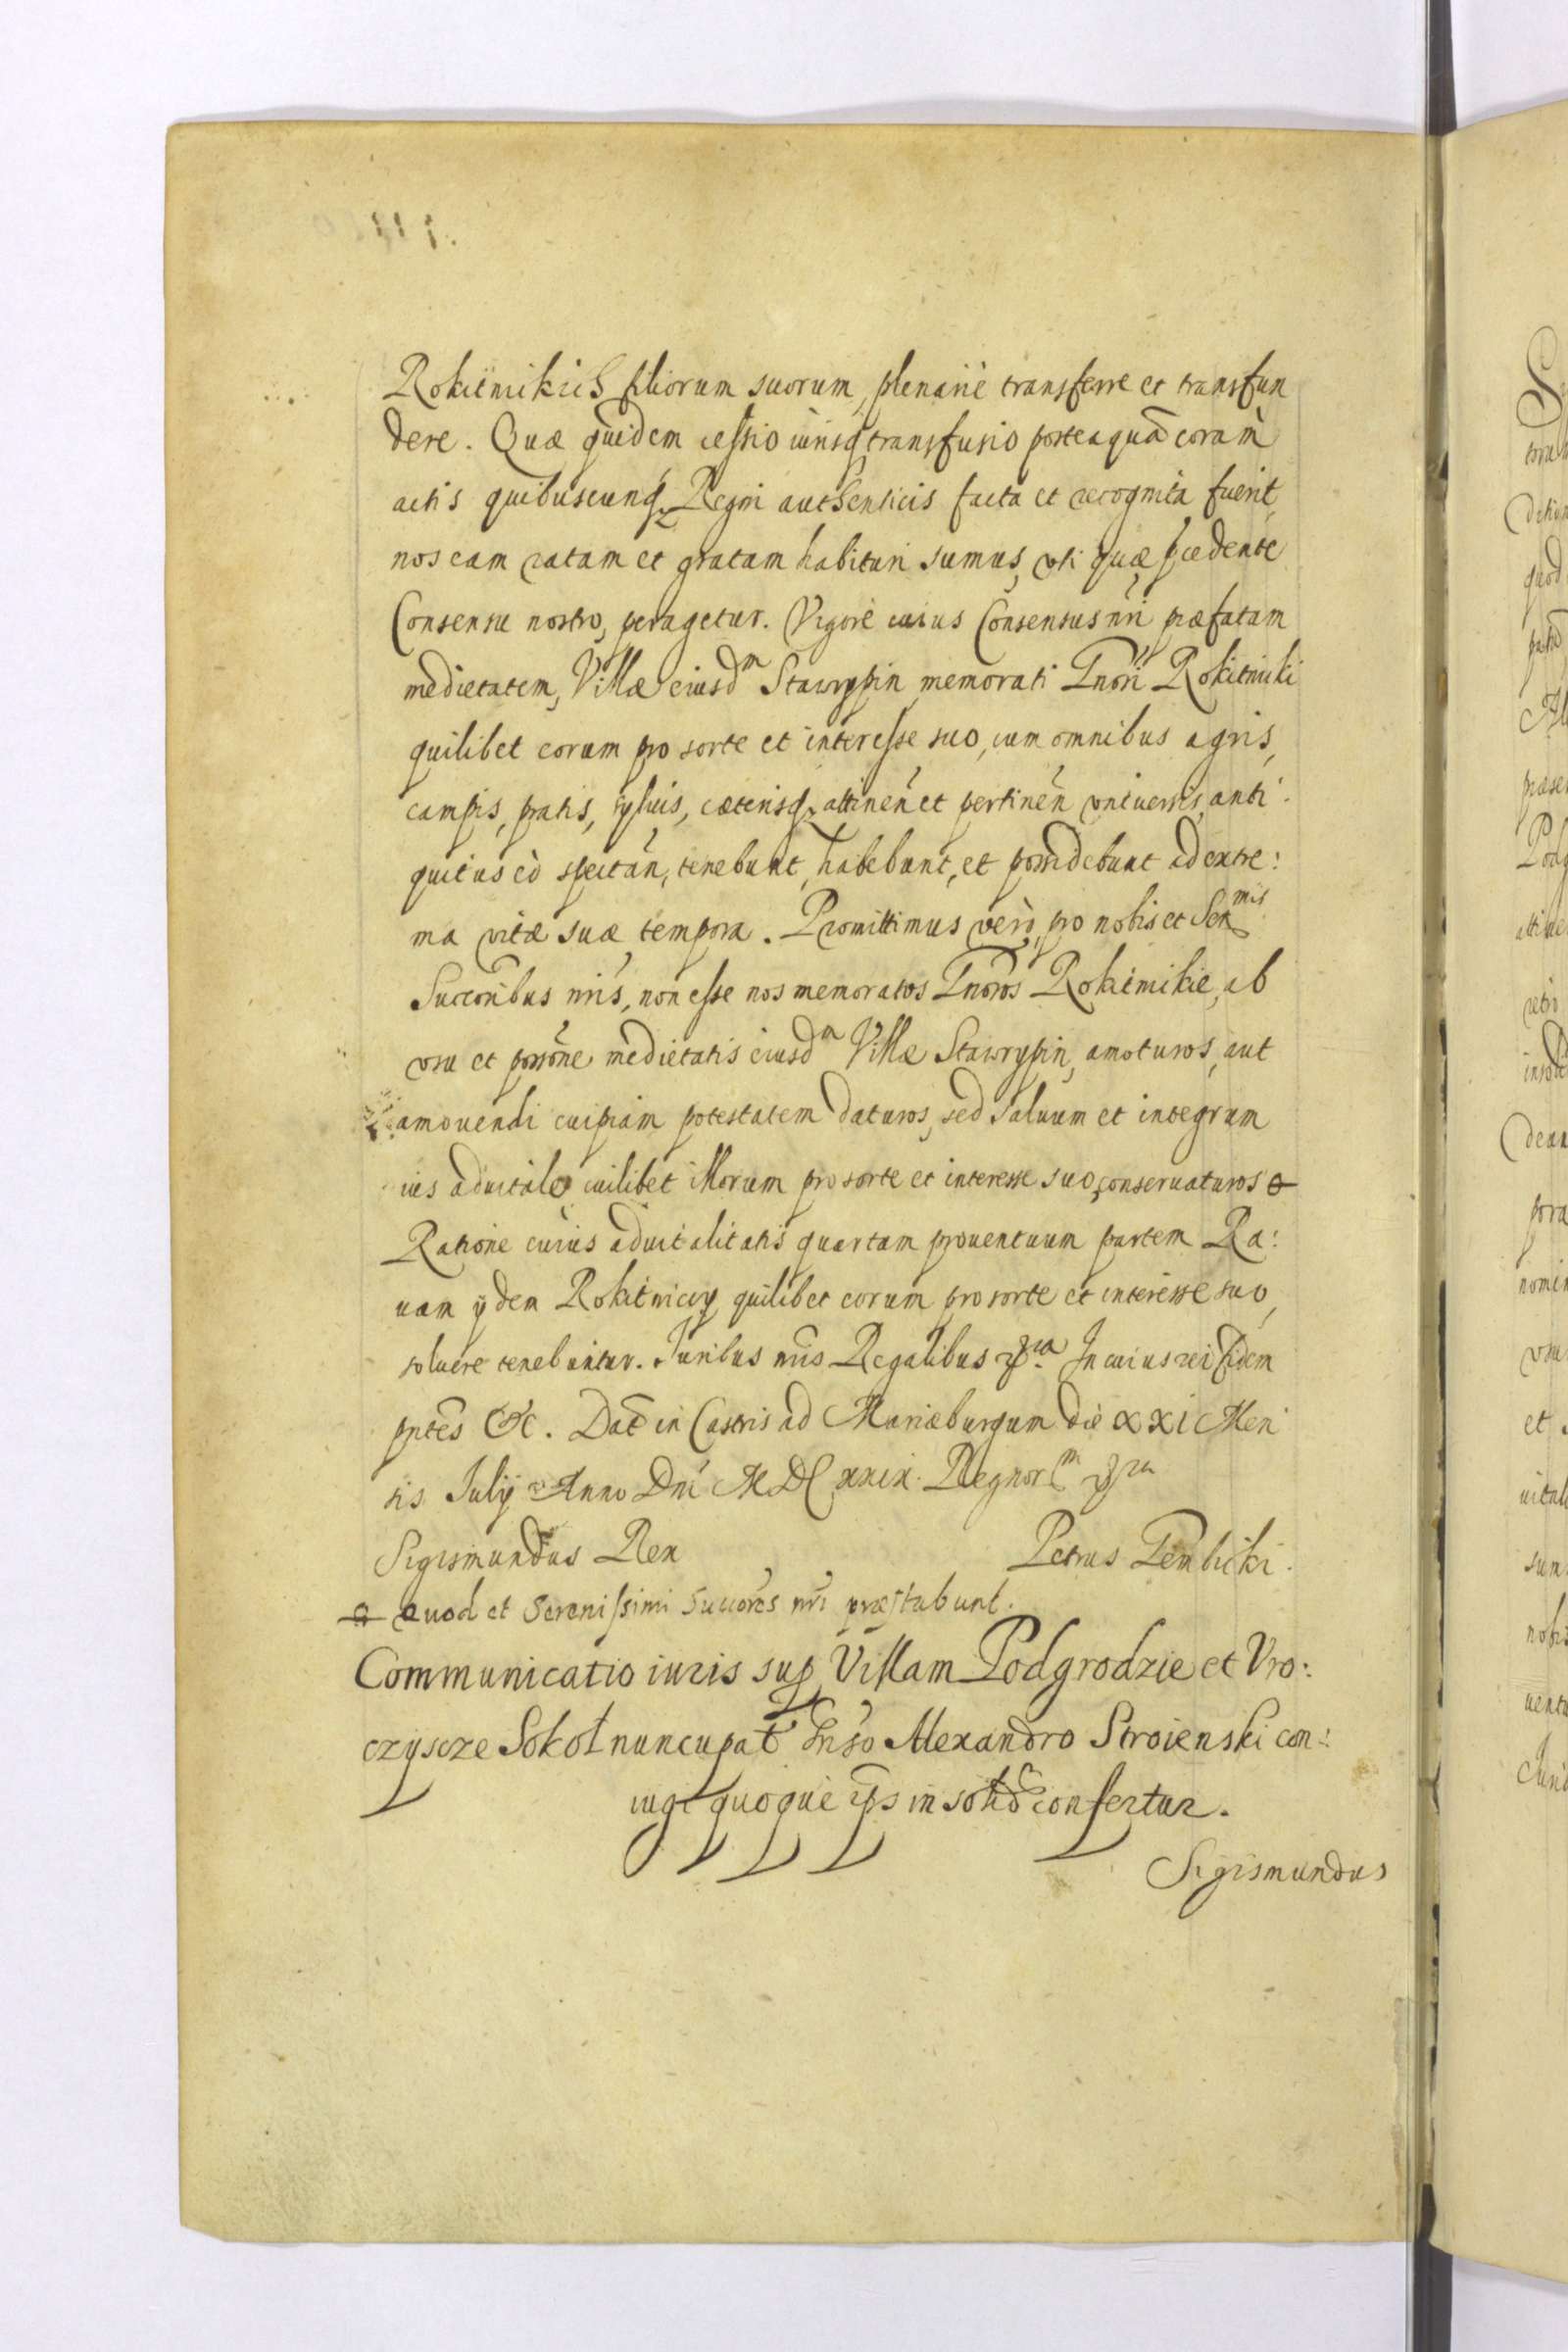 Rokitnikiis filiorum suorum, plenariè transferre et transfun
dere. Quæ quidem cessio iurisq transfusio posteaquã coram
actis quibuscunq Regni authenticis facta et recognita fuerit,
nos eam ratam et gratam habituri sumus, uti quæ præcedente
Consensu nostro, peragetur. Vigore cuius Consensus nri præfatam
medietatem, Villæ eiusd^m Stawrypin memorati Gnori Rokitniki
quilibet eorum pro sorte et interesse suo, cum omnibus agris,
campis, pratis, syluis, cæterisq attinen et pertinen vniuersis, anti
quitus eò spectan, tenebunt, habebunt, et possidebunt ad extre:
ma vitæ suæ tempora. Promittimus verò, pro nobis et Ser^mis
Succoribus nris, non esse nos memoratos Gnoros Rokitnikie, ab
vsu et possone medietatis eiusd^m Villæ Stawrypin, amoturos, aut
amouendi cuipiam potestatem daturos, sed saluum et integrum
ius aduitale cuilibet illorum pro sorte et interesse suo, conseruaturos
Ratione cuius aduitalitatis quartam prouentuum partem Ra:
uam ijdem Rokitniccy quilibet eorum pro sorte et interesse suo,
soluere tenebuntur. Iuribus nris Regalibus In cuius rei fidem
pntes &c. Dat in Castris ad Mariæburgum die XXI Men
sis Iulij Anno Dni MDCXXIX. Regnor^m
Sigismundus Rex Petrus Gembicki.
quod et Serenissimi Succores nri præstabunt.
Communicatio iuris sup Villam Podgrodzie et Vro:
czyscze Sokoł nuncupat Gnso Alexandro Stroienski con:
iugi quoque ips in solid confertur.
Sigismundus